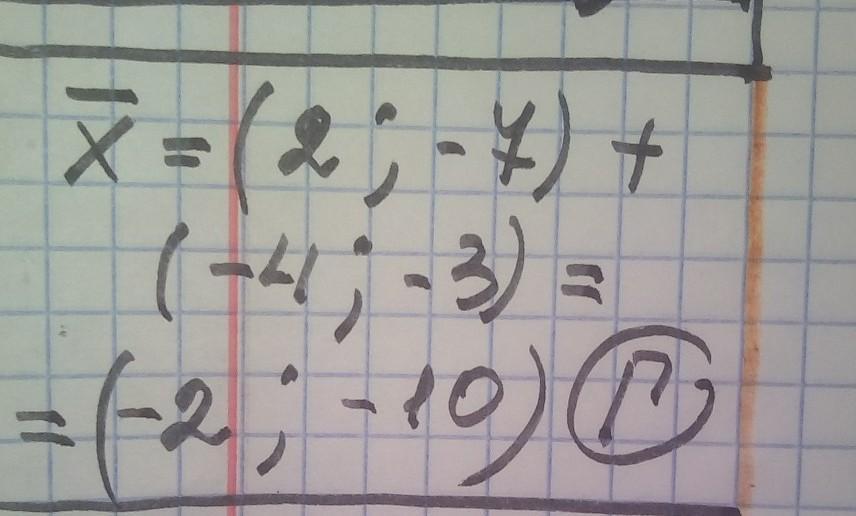 x̄ = (2 ; -7) +
(-4 ; -3) =
= (-2 ; -10) Г